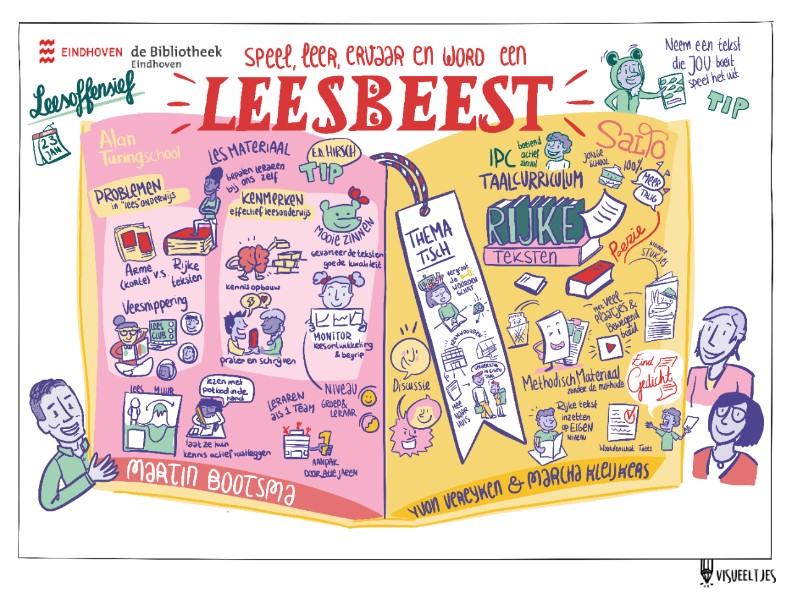 EINDHOVEN de Bibliotheek
Eindhoven
Leesoffensief
23
JAN
SPEEL, LEER, ERVAAR EN WORD EEN
LEESBEEST
Neem een tekst
die JOU boeit
speel het uit
TIP
Alan
Turingschool
PROBLEMEN
in "lees"onderwijs
Arme
(korte) v.s. Rijke
teksten
Versnippering
LEES
CLUB
LES MATERIAAL
bepalen leraren
bij ons zelf
E.D. HIRSCH
TIP
KENMERKEN
effectief leesonderwijs
kennisopbouw
praten en schrijven
MOOIE ZINNEN
gevarieerde teksten
goede kwaliteit
MONITOR
leesontwikkeling
& begrip
NIVEAU
GROEP &
LERAAR
LEES MUUR
lezen met
potlood in de
hand
laat ze hun
kennis actief vastleggen
LERAREN
ALS 1 TEAM
AANPAK
DOOR ALLE JAREN
MARTIN BOOTSMA
THEMA
TISCH
vergroot
de
WOORDEN
SCHAT
MEE
NAAR
HUIS
Discussie
IPC
boeiend
actief
zinvol
TAALCURRICULUM
RIJKE
TEKSTEN
SALTO
JONGE
SCHOOL
100%
MEER
TALIG
Poëzie
kleinere
STUKJES
met veel
plaatjes &
Bewegend
beeld
Methodisch Materiaal
zonder de methode
Eind
Gedicht
Rijke tekst
inzetten
op EIGEN
NIVEAU
Woordenschat Toets
YVON VEREYKEN & MARCHA KLEIJKERS
VISUEELTJES